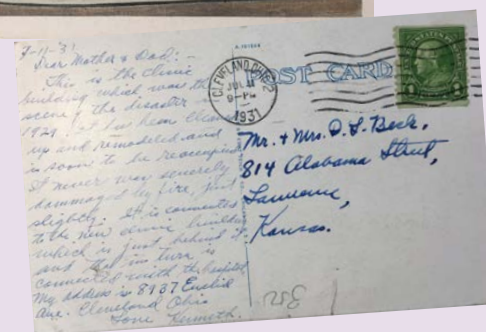 7-11-31
Dear Mother & Dad: –
This is the clinic
building which was the
scene of the disaster in
1929. It has been cleaned
up and remodeled and
is soon to be reoccupied.
It never was severely
dammaged by fire, just
slightly. It is connected
to the new clinic building
which is just behind it
and that in turn is
connected with the hospital
My address is 8937 Euclid
Ave. Cleveland Ohio
Love Kenneth.
POST CARD
CLEVELAND, OHIO
JUL 11
9 - PM
1931
Mr. & Mrs. O. S. Beck,
814 Alabama Street,
Lawrence,
Kansas.